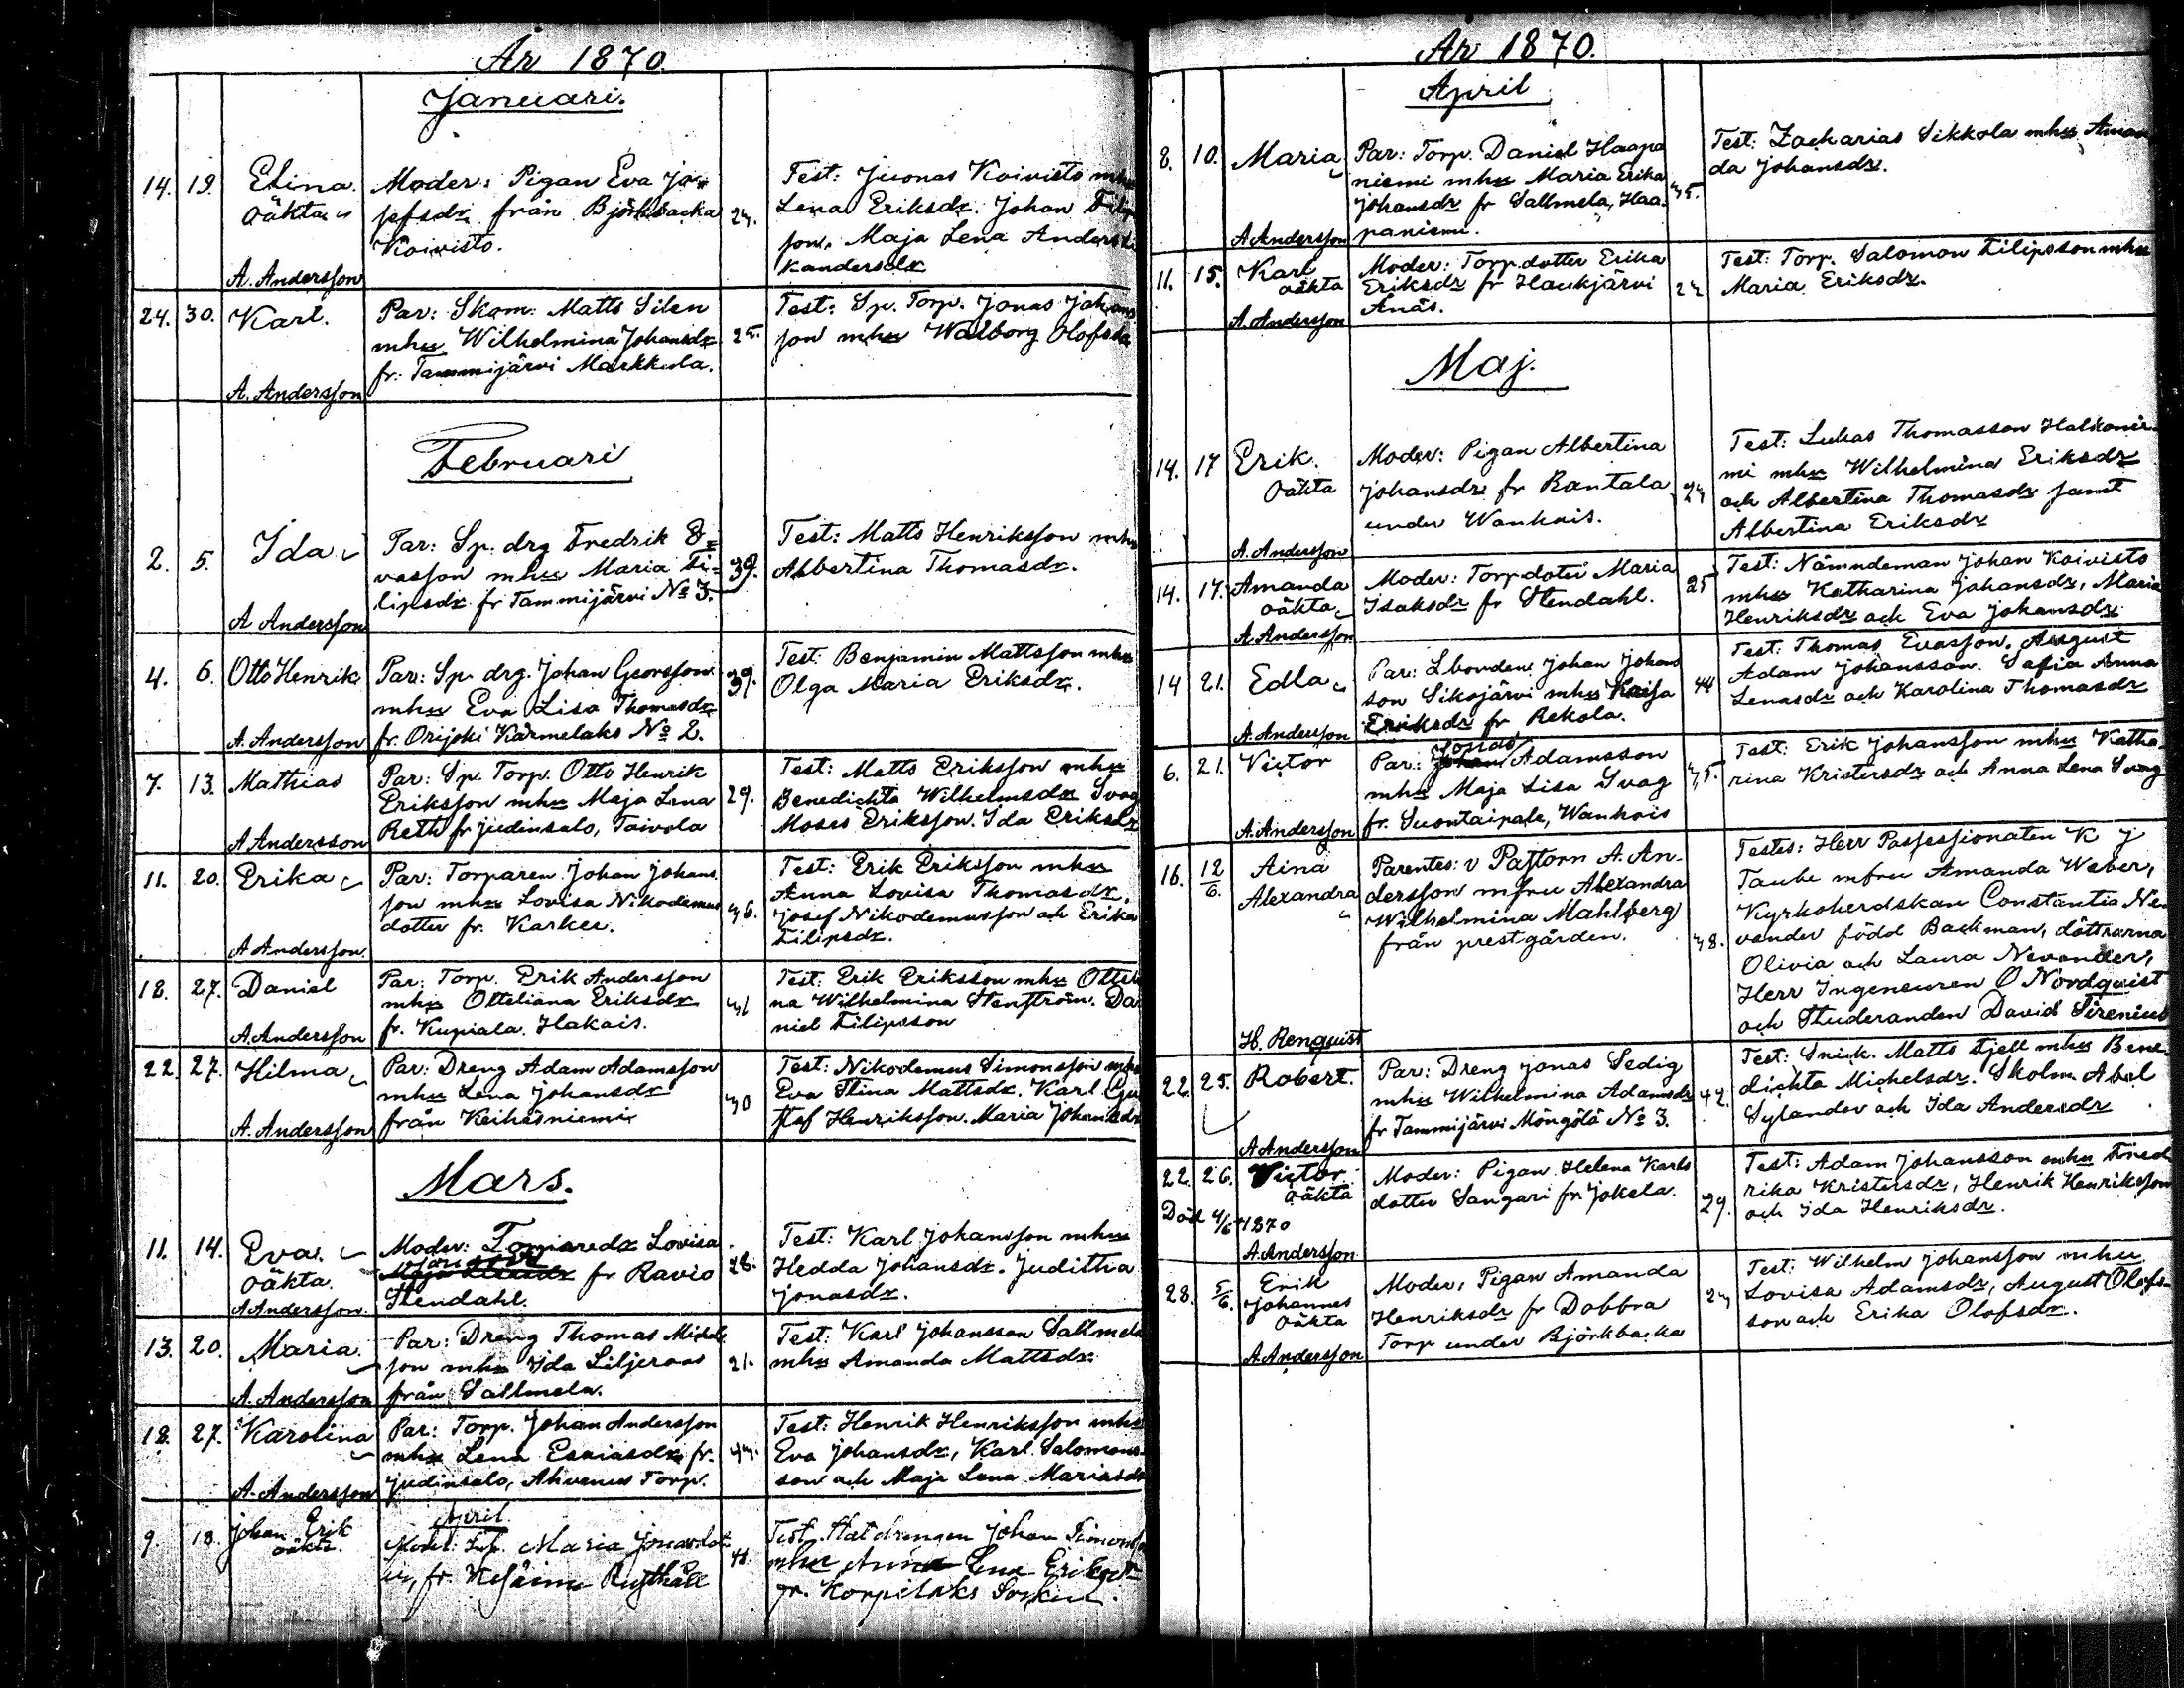 År 1870.
Januari.
14. 19. Elina. oäkta
A. Andersson
Moder: Pigan Eva Jo-
sefsdr från Björkbacka
Koivisto.
24.
Test: Juonas Koivisto mhu
Lena Eriksdr. Johan
son, Maja Lena
24. 30. Karl.
A. Andersson
Par: Skom: Matts Silen
mhu Wilhelmina Johansdr
fr: Tammijärvi Markkula.
25.
Test: Sp. Torp. Jonas Johans
son mhu Walborg Olofsdr
Februari
2. 5. Ida
A Andersson
Par: Sp. drg Fredrik E-
vasson mhu Maria Fi-
lipsdr fr Tammijärvi No 3.
39.
Test: Matts Henriksson mhu
Albertina Thomasdr.
4. 6. Otto Henrik
A. Andersson
Par: Sp. drg. Johan Georsson
mhu Eva Lisa Thomasdr
fr. Orijoki Karmelaks No 2.
39.
Test: Benjamin Mattsson mhu
Olga Maria Eriksdr.
7. 13. Mathias
A Andersson
Par: Sp. Torp. Otto Henrik
Eriksson mhu Maja Lena
Reth fr Judinsalo, Taivola
29.
Test: Matts Eriksson mhu
Benedichta Wilhelmsdr Svag
Moses Eriksson. Ida Eriksdr
11. 20. Erika
A Andersson.
Par: Torparen Johan Johans
son mhu Lovisa Nikodemus
dotter fr. Karkee.
36.
Test: Erik Eriksson mhu
Anna Lovisa Thomasdr,
Josef Nikodemusson och Erika
Filipsdr.
18. 27. Daniel
A. Andersson
Par: Torp. Erik Andersson
mhu Otteliana Eriksdr
fr. Kupiala. Hakais.
31
Test: Erik Eriksson mhu Otteli
na Wilhelmina Stenström. Da
niel Filipsson
22. 27. Hilma
A. Andersson
Par: Dreng Adam Adamsson
mhu Lena Johansdr
från Keihäsniemi
30
Test: Nikodemus Simonsson mhu
Eva Stina Mattsdr. Karl Gu
staf Henriksson. Maria Johansdr
Mars.
11. 14. Eva.
oäkta.
A Andersson.
Moder: Lovisa
fr Ravio
Stendahl.
28.
Test: Karl Johansson mhu
Hedda Johansdr. Judittha
Jonasdr.
13. 20. Maria.
A. Andersson
Par: Dreng Thomas Mickels
son mhu Ida Liljeroos
från Sallmela.
21.
Test: Karl Johansson Sallmela
mhu Amanda Mattsdr
18. 27. Karolina
A. Andersson
Par: Torp. Johan Andersson
mhu Lena Esaiasdr fr.
Judinsalo, Ahvenus Torp.
44.
Test: Henrik Henriksson mhu
Eva Johansdr, Karl Salomons-
son och Maja Lena Mariasdr
April.
9. 18. Johan Erik
oäkta.
Maria Jonasdot
ter, fr. Rusthåll
41.
Test. Johan Simonsson
mhu Anna Lena Eriksdr
fr. Korpilaks
År 1870.
April
8. 10. Maria
A Andersson
Par: Torp. Daniel Haapa
niemi mhu Maria Erika
Johansdr fr Sallmela, Haa-
paniemi.
35.
Test: Zacharias Sikkola mhu Aman
da Johansdr.
11. 15. Karl
oäkta
A. Andersson
Moder: Torp.dotter Erika
Eriksdr fr Haukjärvi
Anäs.
22
Test: Torp. Salomon Filipsson mhu
Maria Eriksdr.
Maj.
14. 17 Erik.
oäkta
A. Andersson
Moder: Pigan Albertina
Johansdr fr Rantala
under Wanhais.
24
Test: Lukas Thomasson Halkonie-
mi mhu Wilhelmina Eriksdr
och Albertina Thomasdr samt
Albertina Eriksdr
14. 17. Amanda
oäkta
A. Andersson
Moder: Torpdoter Maria
Isaksdr fr Stendahl.
25
Test: Nämndeman Johan Koivisto
mhu Katharina Johansdr, Maria
Henriksdr och Eva Johansdr
14 21. Edla
A. Andersson
Par: Lbonden Johan Johans
son Sikojärvi mhu Kaisa
Eriksdr fr Rekola.
44
Test: Thomas Evasson. August
Adam Johansson. Safia Anna
Lenasdr och Karolina Thomasdr
6. 21. Victor
A. Andersson
Jonas
Par: Johan Adamsson
mhu Maja Lisa Svag
fr. Suontaipale, Wanhois
35.
Test: Erik Johansson mhu Katha-
rina Kristersdr och Anna Lena Svag
16. 12/6. Aina
Alexandra
H. Renquist
Parentes: v Pastorn A. An-
dersson mfru Alexandra
Wilhelmina Mahlberg
från prestgården.
38.
Testes: Herr Possessionaten K J
Taube mfru Amanda Weber,
Kyrkoherdskan Constantia Ne-
vander född Backman, döttrarna
Olivia och Laura Nevander,
Herr Ingeneuren O Nordquist
och Studeranden David Sirenius
22. 25. Robert.
A Andersson
Par: Dreng Jonas Sedig
mhu Wilhelmina Adamsdr
fr Tammijärvi Möngölä No 3.
42.
Test: Snick. Matts Fjell mhu Bene-
dichta Michelsdr. Skolm. Abel
Sylander och Ida Andersdr
22. 26. Victor
oäkta
Död 4/6 1870
A. Andersson
Moder: Pigan Helena Karls
dotter Sangari fr Jokela.
29.
Test: Adam Johansson mhu Fried
rika Kristersdr, Henrik Henriksson
och Ida Henriksdr.
28. 5/6. Erik
Johannes
oäkta
A. Andersson
Moder: Pigan Amanda
Henriksdr fr Dobbra
Torp under Björkbacka
24
Test: Wilhelm Johansson mhu
Lovisa Adamsdr, August Olofs-
son och Erika Olofsdr.